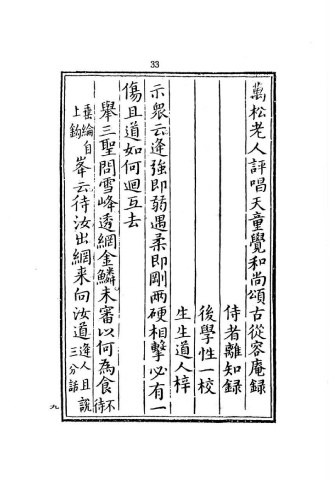 33
萬松老人評唱天童覺和尚頌古從容庵錄
侍者離知錄
後學性一校
生生道人梓
示眾云逢強即弱遇柔即剛兩硬相擊必有一
傷且道如何迴互去
舉三聖問雪峰透網金鱗未審以何為食不待
垂綸自上鈎峯云待汝出網来向汝道逢人且說三分話
九